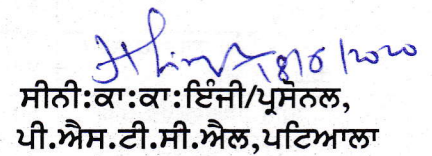 18/6/2020
ਸੀਨੀ:ਕਾ:ਕਾ:ਇੰਜੀ/ਪ੍ਰਸੋਨਲ,
ਪੀ.ਐਸ.ਟੀ.ਸੀ.ਐਲ,ਪਟਿਆਲਾ